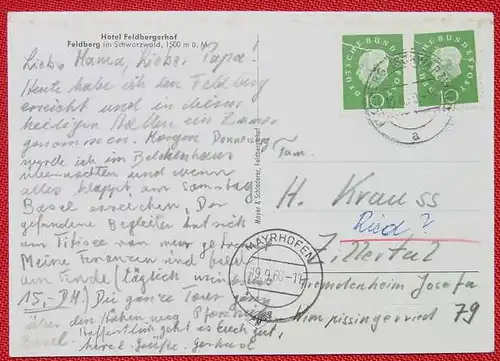 Hotel Feldbergerhof
Feldberg im Schwarzwald, 1500 m ü. M.
Liebe Mama, Lieber Papa!
Heute habe ich den Feldberg
erreicht und in diesen
heiligen Hallen ein Zimmer
genommen. Morgen Donnerstag
werde ich im Belchenhaus
übernachten und wenn
alles klappt, am Samstag
Basel erreichen. Der
gefundene Begleiter hat sich
am Titisee von mir
Meine Finanzen sind
am Ende (täglich
15,- DM) Die ganze Tour
über den Höhenweg Pforzheim
Basel. Hoffentlich geht es Euch gut,
Mayer & Feldberghof
DEUTSCHE BUNDESPOST
10
DEUTSCHE BUNDESPOST
10
a
Fam.
H. Krauss
Ried?
Zillertal
Fremdenheim Josefa
79
MAYRHOFEN